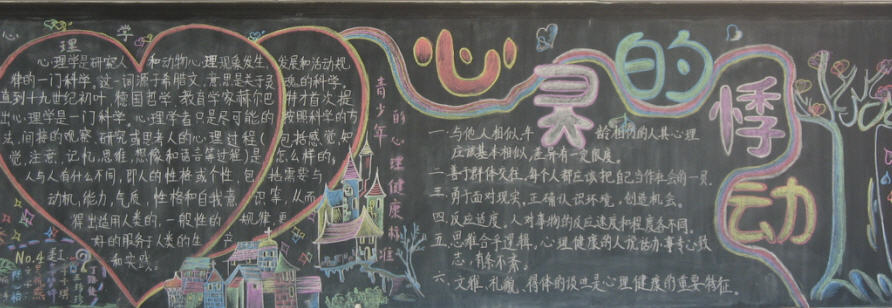 心理学
心理学是研究人和动物心理现象发生、发展和活动规
律的一门科学。这一词源于希腊文,意思是关于灵魂的科学。
直到十九世纪初叶,德国哲学、教育学家赫尔巴特才首次提
出心理学是一门科学。心理学者只是尽可能的按照科学的方
法,间接的观察、研究或思考人的心理过程(包括感觉、知
觉、注意、记忆、思维、想像和语言等过程)是怎么样的,
人与人有什么不同,即人的性格或个性,包括需要与
动机、能力、气质、性格和自我意识等,从而
得出适用人类的、一般性的规律,更
好的服务于人类的生产
和实践。
No.4
青少年的心理健康标准
心灵的悸动
一、与他人相似,年龄相仿的人其心理
应该基本相似,差异有一定限度。
二、善于群体交往,每个人都应该把自己当作社会的一员。
三、勇于面对现实,正确认识环境,创造机会。
四、反应适度,人对事物的反应速度和程度各不同。
五、思维合乎逻辑,心理健康的人说话办事专心致
志,有条不紊。
六、文雅、礼貌、得体的谈吐是心理健康的重要特征。